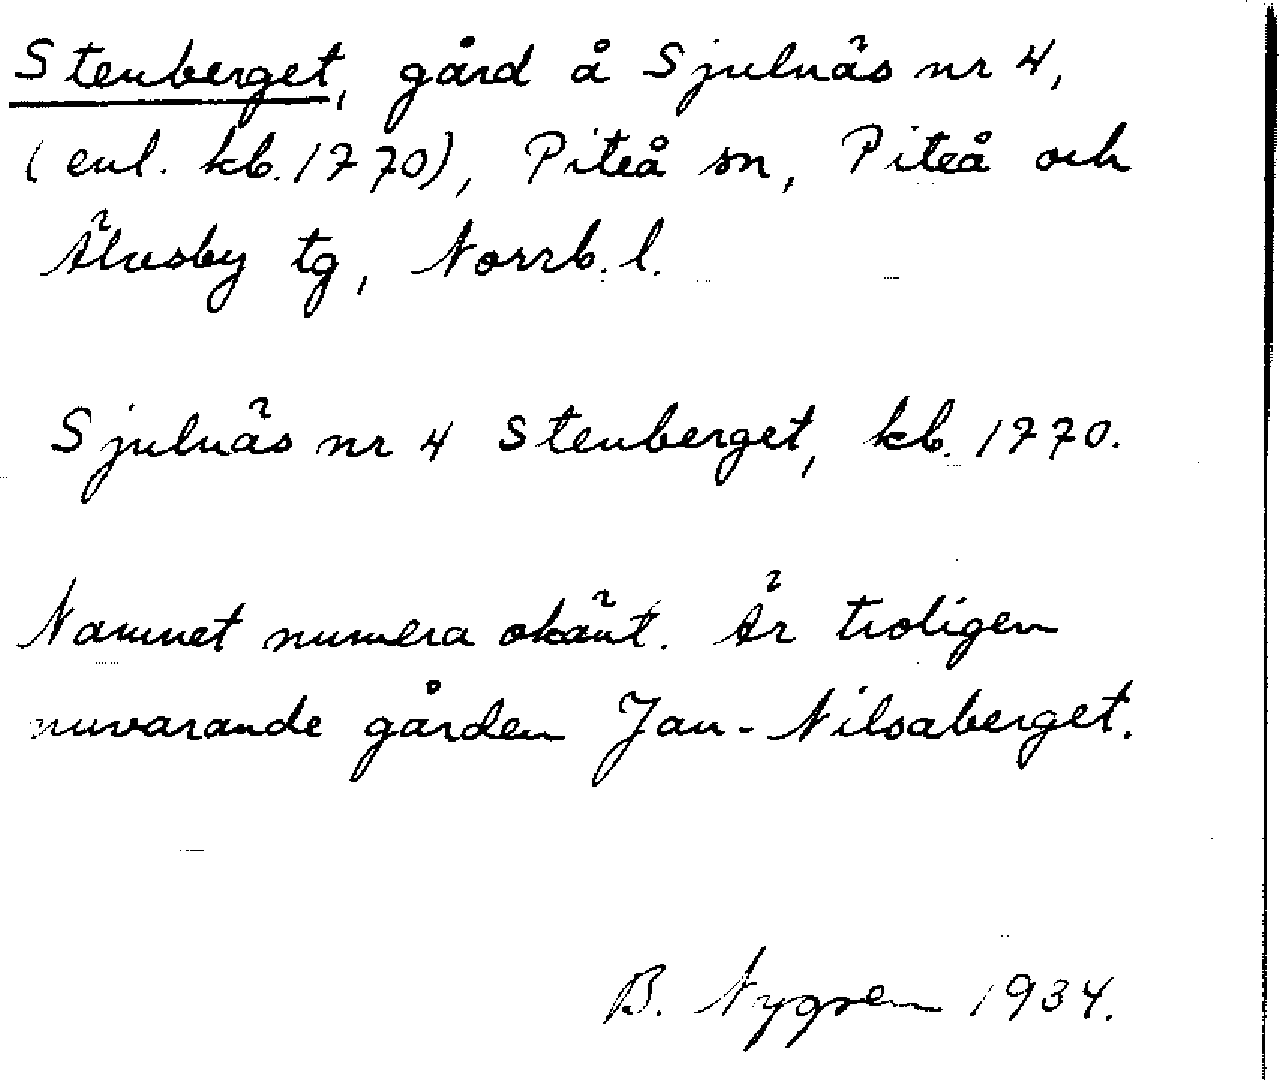 Stenberget, gård å Sjulnäs nr 4,
(enl. kb. 1770), Piteå sn, Piteå och
Älvsby tg, Norrb. l.
Sjulnäs nr 4 Stenberget, kb. 1770.
Namnet numera okänt. Är troligen
nuvarande gården Jan-Nilsaberget.
B. Nygren 1934.